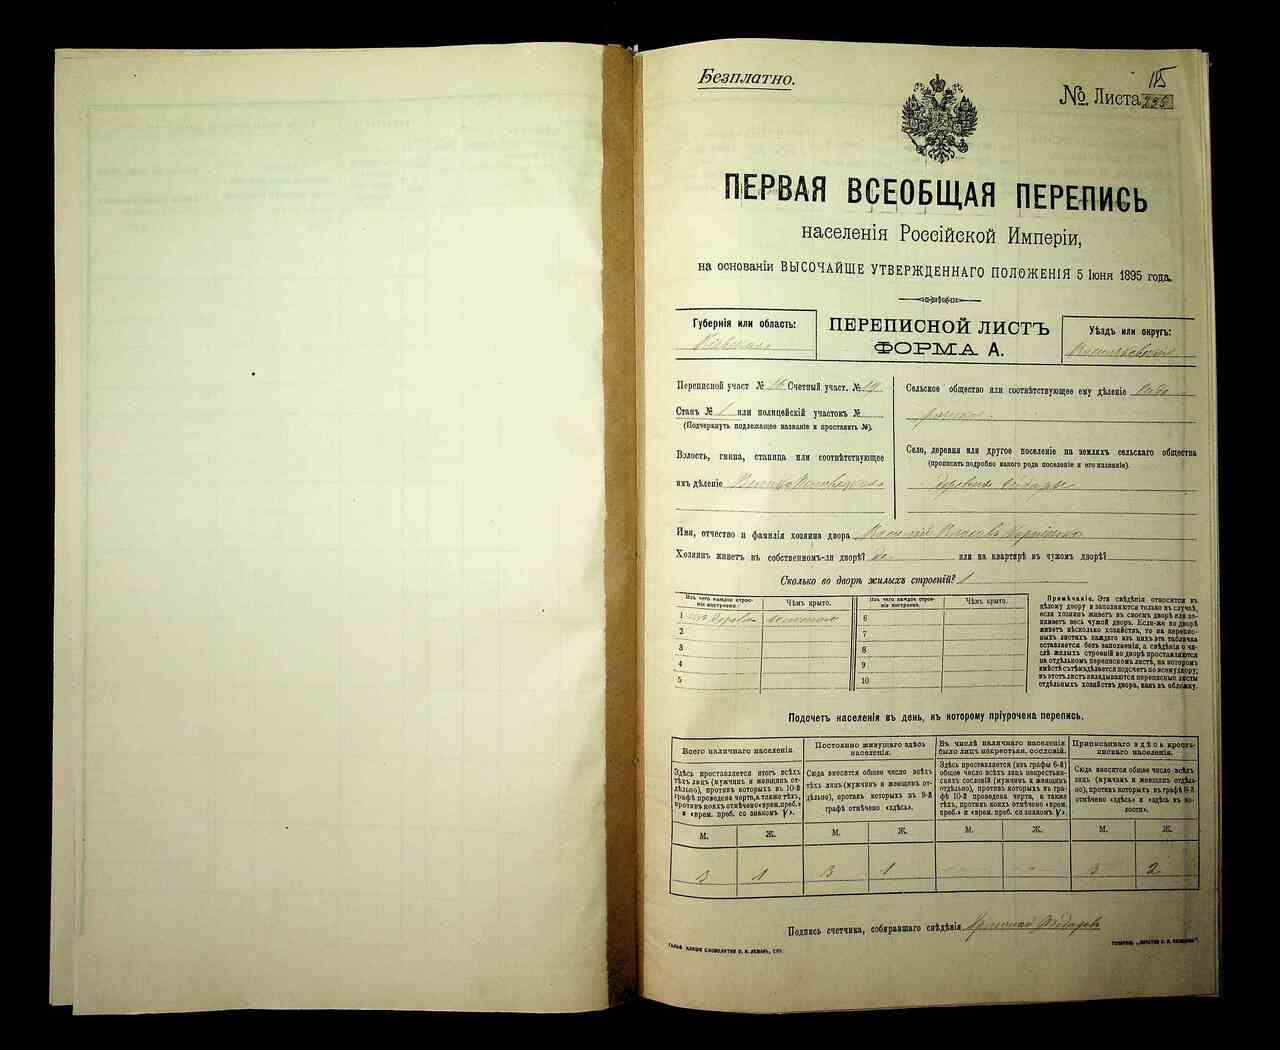 Безплатно.
115
№ Листа 225
ПЕРВАЯ ВСЕОБЩАЯ ПЕРЕПИСЬ
населенія Россійской Имперіи,
на основаніи ВЫСОЧАЙШЕ УТВЕРЖДЕННАГО ПОЛОЖЕНІЯ 5 Іюня 1895 года.
Губернія или область:
Кіевская
ПЕРЕПИСНОЙ ЛИСТЪ
ФОРМА А.
Уѣздъ или округъ:
Васильковскій
Переписной участ № 16 Счетный участ. № 19
Станъ № 1 или полицейскій участокъ №
(Подчеркнуть подлежащее названіе и проставить №).
Волость, гмина, станица или соотвѣтствующее
имъ дѣленіе
Сельское общество или соотвѣтствующее ему дѣленіе
Село, деревня или другое поселеніе на земляхъ сельскаго общества
(прописать подробно какого рода поселеніе и его названіе).
деревня
Имя, отчество и фамилія хозяина двора
Хозяинъ живетъ в собственномъ-ли дворѣ? да или на квартирѣ въ чужомъ дворѣ?
Сколько во дворѣ жилыхъ строеній? 1
Изъ чего каждое строе-
ніе построено.
Чѣмъ крыто.
1 изъ дерева соломою
2
3
4
5
Изъ чего каждое строе-
ніе построено.
Чѣмъ крыто.
6
7
8
9
10
Примѣчаніе. Эта свѣдѣнія относятся къ
цѣлому двору и заполняются только въ случаѣ,
если хозяинъ живетъ въ своемъ дворѣ или за-
нимаетъ весь чужой дворъ. Если-же во дворѣ
живетъ нѣсколько хозяйствъ, то на перепис-
ныхъ листахъ каждаго изъ нихъ эта табличка
оставляется безъ заполненія, а свѣдѣнія о чи-
слѣ жилыхъ строеній во дворѣ проставляются
на отдѣльномъ переписномъ листѣ, на которомъ
вмѣстѣ съ тѣмъ дѣлается подсчетъ по всему двору;
въ этотъ листъ вкладываются переписные листы
отдѣльныхъ хозяйствъ двора, какъ въ обложку.
Подсчетъ населенія въ день, къ которому пріурочена перепись.
Всего наличнаго населенія.
Здѣсь проставляется итогъ всѣхъ
тѣхъ лицъ (мужчинъ и женщинъ от-
дѣльно), противъ которыхъ въ 10-й
графѣ проведена черта, а также тѣхъ,
противъ коихъ отмѣчено «врем. преб.»
и «врем. преб. со знакомъ V».
М. Ж.
3 1
Постоянно живущаго здѣсь
населенія.
Сюда вносится общее число всѣхъ
тѣхъ лицъ (мужчинъ и женщинъ от-
дѣльно), противъ которыхъ въ 9-й
графѣ отмѣчено «здѣсь».
М. Ж.
3 1
Въ числѣ наличнаго населенія
было лицъ некрестьян. сословій.
Здѣсь проставляется (изъ графы 6-й)
общее число всѣхъ лицъ некрестьян-
скихъ сословій (мужчинъ и женщинъ
отдѣльно), противъ которыхъ въ гра-
фѣ 10-й проведена черта, а также
тѣхъ, противъ коихъ отмѣчено «врем.
преб.» и «врем. преб. со знакомъ V».
М. Ж.
- -
Приписаннаго здѣсь кресть-
янскаго населенія.
Сюда вносится общее число всѣхъ
лицъ (мужчинъ и женщинъ отдѣль-
но), противъ которыхъ въ графѣ 8-й
отмѣчено «здѣсь» и «здѣсь въ во-
лости».
М. Ж.
3 2
Подпись счетчика, собиравшаго свѣдѣнія